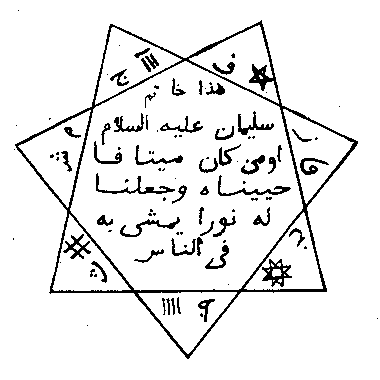 هذا خاتم
سليمان عليه السلام
اومن كان ميتا فا
حييناه وجعلنا
له نورا يمشى به
فى الناس
ف
ج
ش
ث